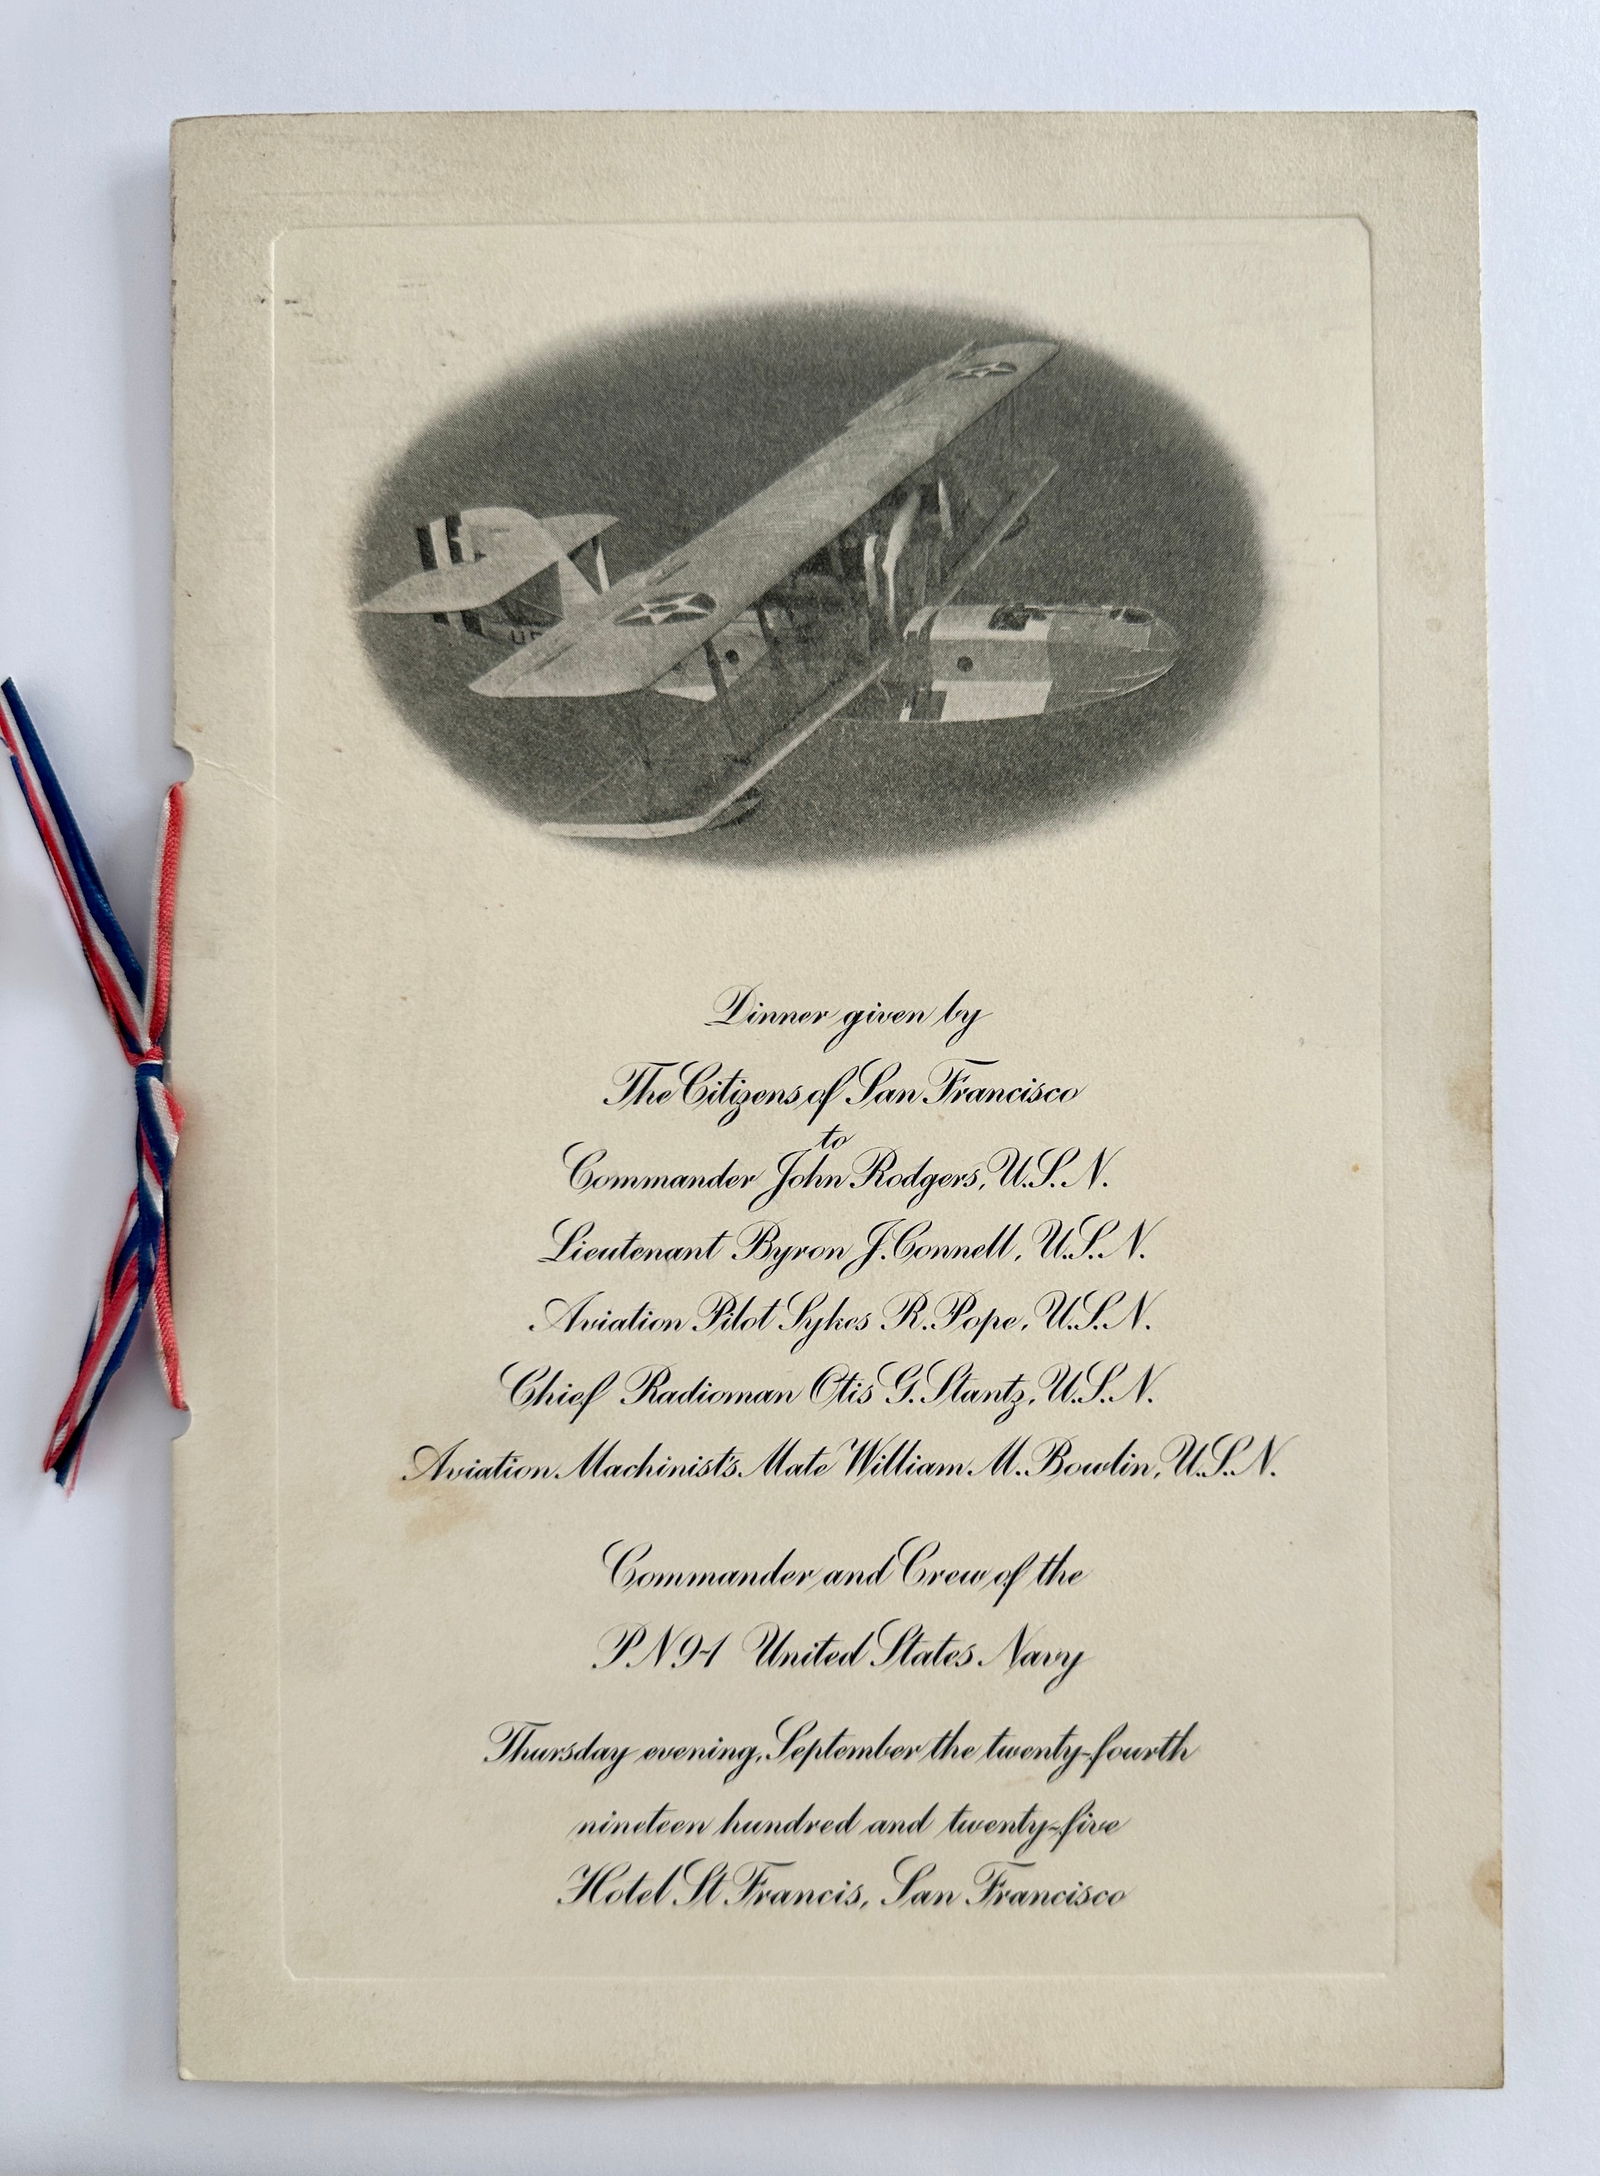 Dinner given by
The Citizens of San Francisco
to
Commander John Rodgers, U.S.N.
Lieutenant Byron J. Connell, U.S.N.
Aviation Pilot Sykes R. Pope, U.S.N.
Chief Radioman Otis G. Stantz, U.S.N.
Aviation Machinist's Mate William M. Bowlin, U.S.N.
Commander and Crew of the
PN9-1 United States Navy
Thursday evening, September the twenty-fourth
nineteen hundred and twenty-five
Hotel St Francis, San Francisco